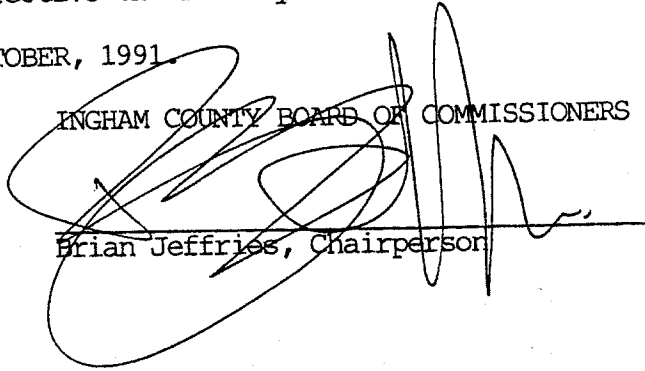 TOBER, 1991.
INGHAM COUNTY BOARD OF COMMISSIONERS
Brian Jeffries, Chairperson